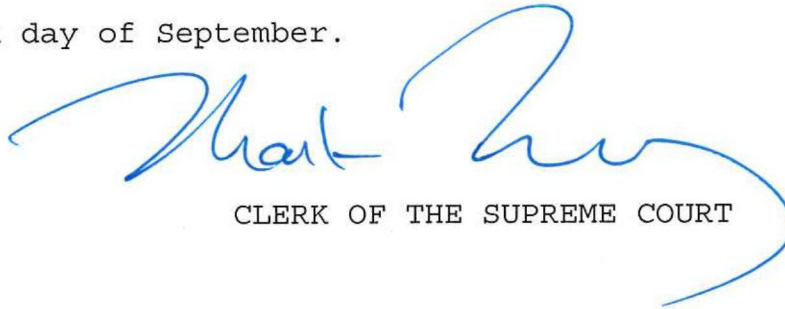 day of September.
Mark
CLERK OF THE SUPREME COURT